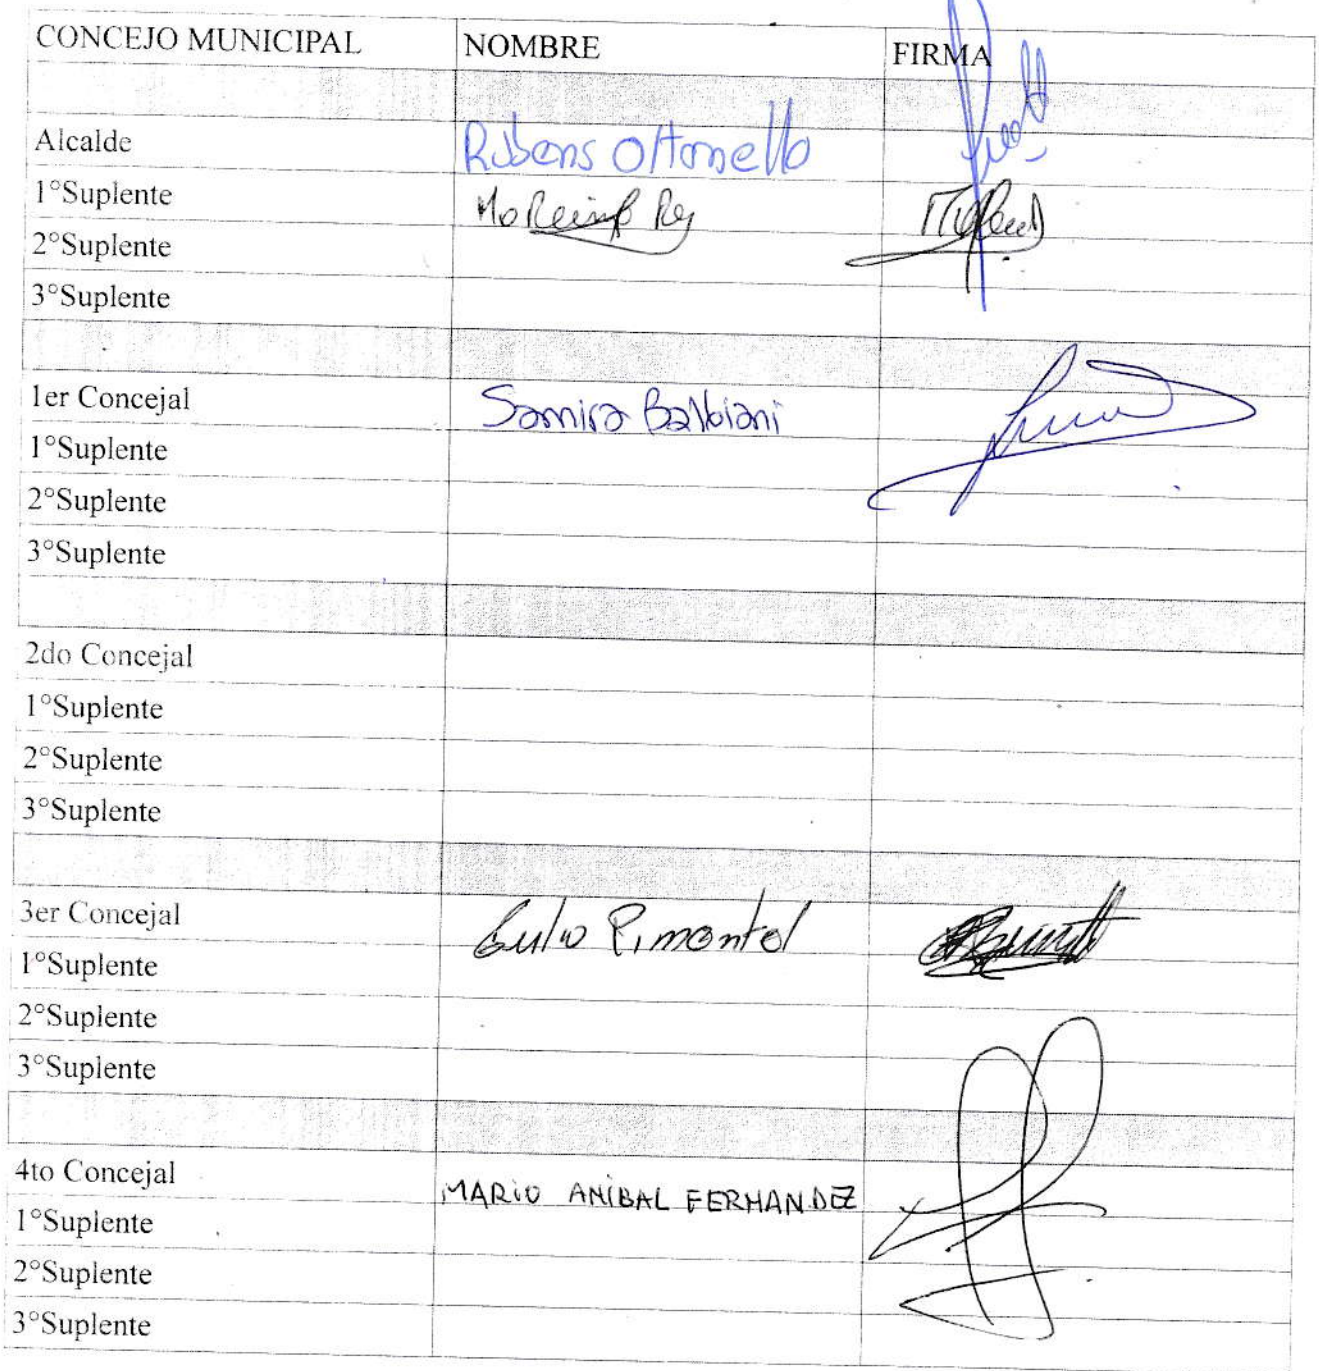 CONCEJO MUNICIPAL NOMBRE FIRMA
Alcalde Rubens Ottonello
1°Suplente
2°Suplente
3°Suplente
1er Concejal Samira Balbiani
1°Suplente
2°Suplente
3°Suplente
2do Concejal
1°Suplente
2°Suplente
3°Suplente
3er Concejal Pimontel
1°Suplente
2°Suplente
3°Suplente
4to Concejal MARIO ANÍBAL FERNANDEZ
1°Suplente
2°Suplente
3°Suplente